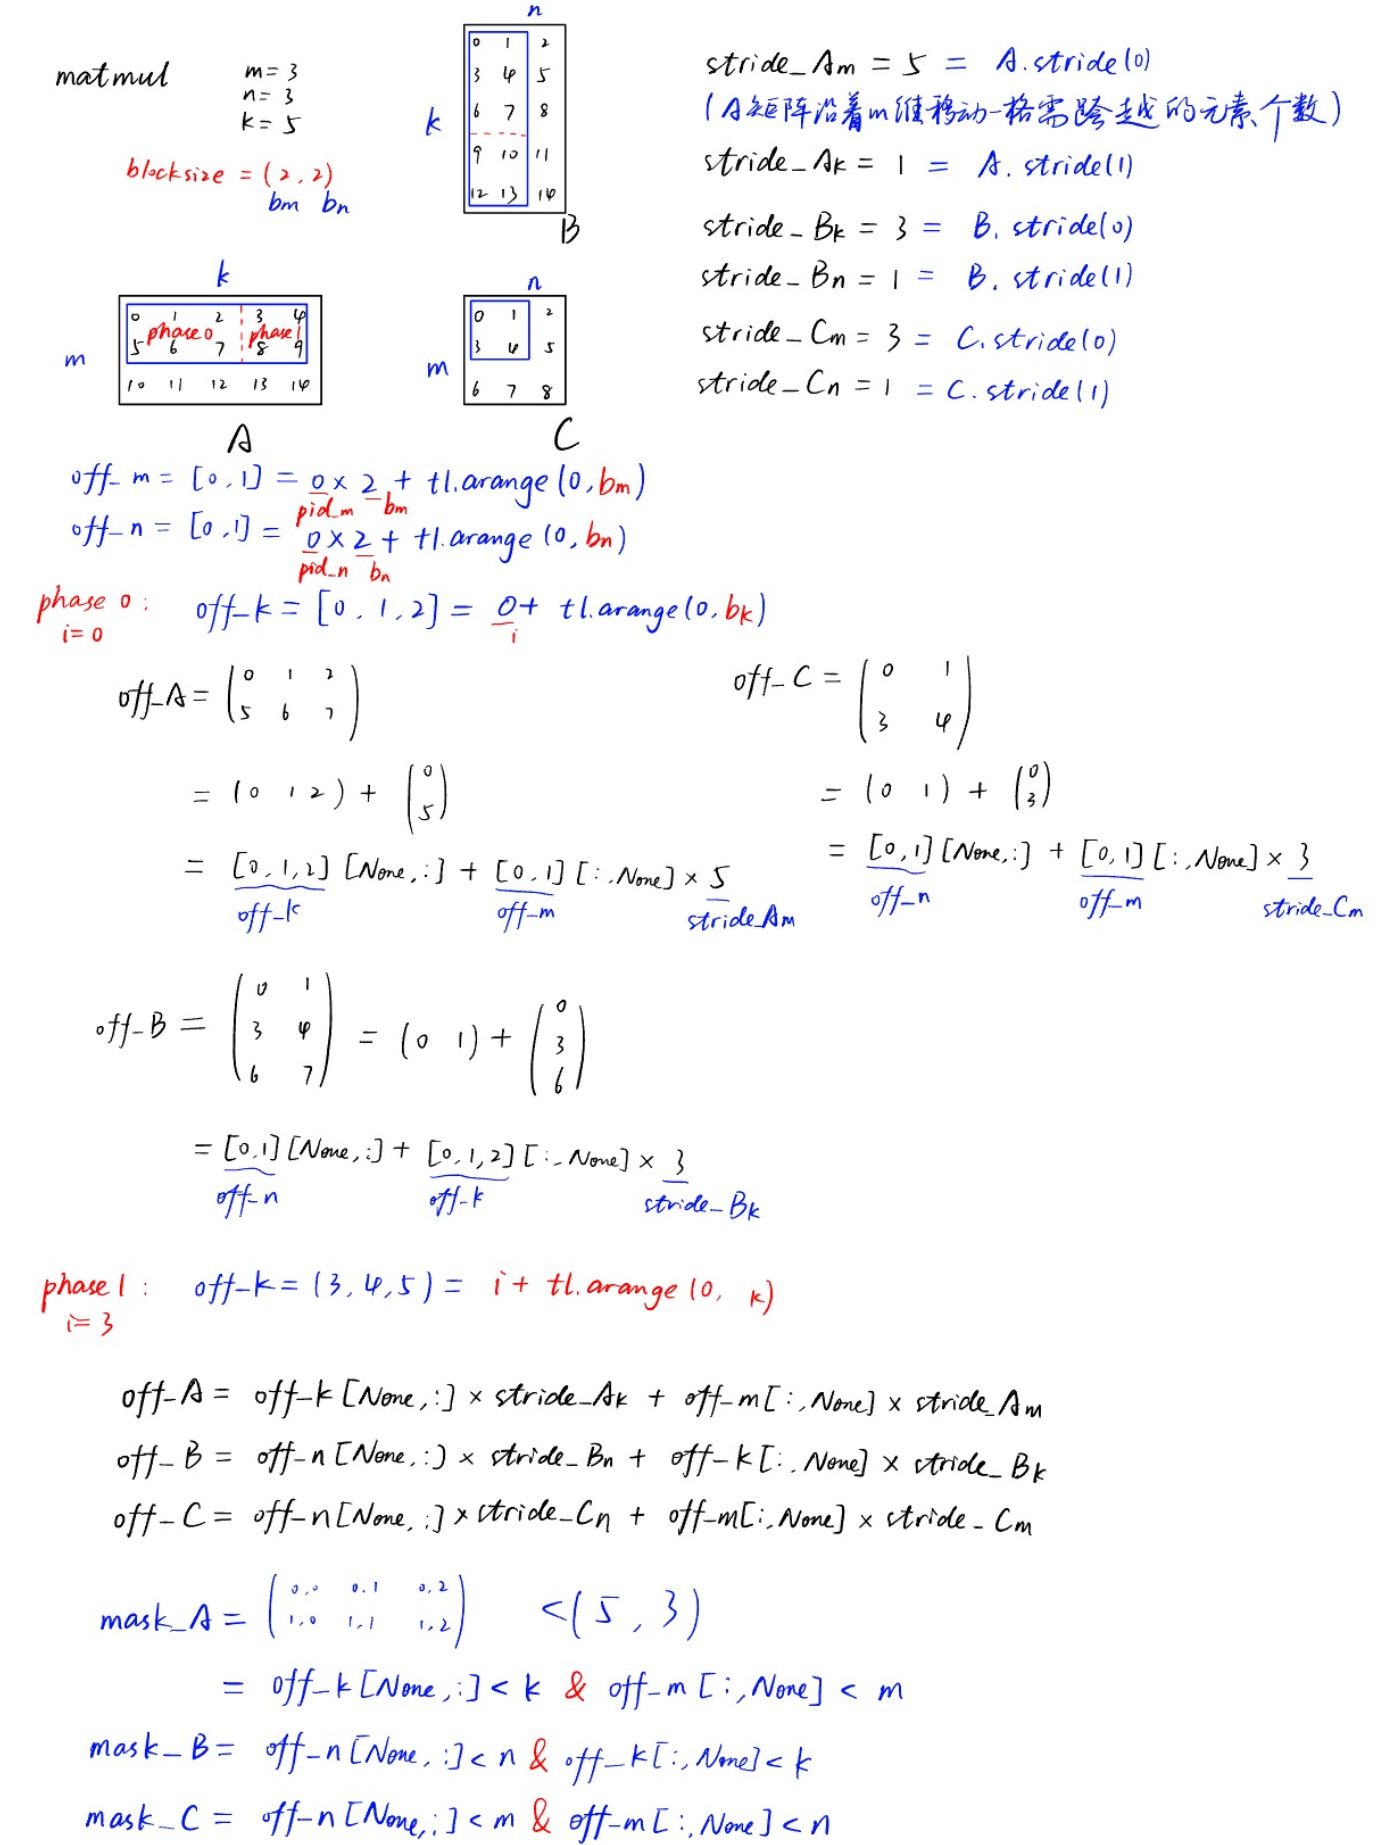 matmul
m=3
n=3
k=5
blocksize = (2, 2)
bm bn
n
k
0 1 2
3 4 5
6 7 8
9 10 11
12 13 14
B
stride_Am = 5 = A.stride(0)
(A矩阵沿着m维移动一格需跨越的元素个数)
stride_Ak = 1 = A.stride(1)
stride_Bk = 3 = B.stride(0)
stride_Bn = 1 = B.stride(1)
stride_Cm = 3 = C.stride(0)
stride_Cn = 1 = C.stride(1)
k
m
0 1 2 3 4
phase 0 phase 1
5 6 7 8 9
10 11 12 13 14
A
n
m
0 1 2
3 4 5
6 7 8
C
off_m = [0,1] = 0 × 2 + tl.arange(0,bm)
pid_m bm
off_n = [0,1] = 0 × 2 + tl.arange(0,bn)
pid_n bn
phase 0: off_k = [0,1,2] = 0 + tl.arange(0,bk)
i=0 i
off_A = (0 1 2
5 6 7)
= (0 1 2) + (0
5)
= [0,1,2][None,:] + [0,1][:,None] × 5
off_k off_m stride_Am
off_C = (0 1
3 4)
= (0 1) + (0
3)
= [0,1][None,:] + [0,1][:,None] × 3
off_n off_m stride_Cm
off_B = (0 1
3 4
6 7) = (0 1) + (0
3
6)
= [0,1][None,:] + [0,1,2][:,None] × 3
off_n off_k stride_Bk
phase 1: off_k = (3,4,5) = i + tl.arange(0, k)
i=3
off_A = off_k[None,:] × stride_Ak + off_m[:,None] × stride_Am
off_B = off_n[None,:) × stride_Bn + off_k[:,None] × stride_Bk
off_C = off_n[None,:] × stride_Cn + off_m[:,None] × stride_Cm
mask_A = (0,0 0,1 0,2
1,0 1,1 1,2) <(5,3)
= off_k[None,:] < k & off_m[:,None] < m
mask_B = off_n[None,:] < n & off_k[:,None] < k
mask_C = off_n[None,:] < m & off_m[:,None] < n